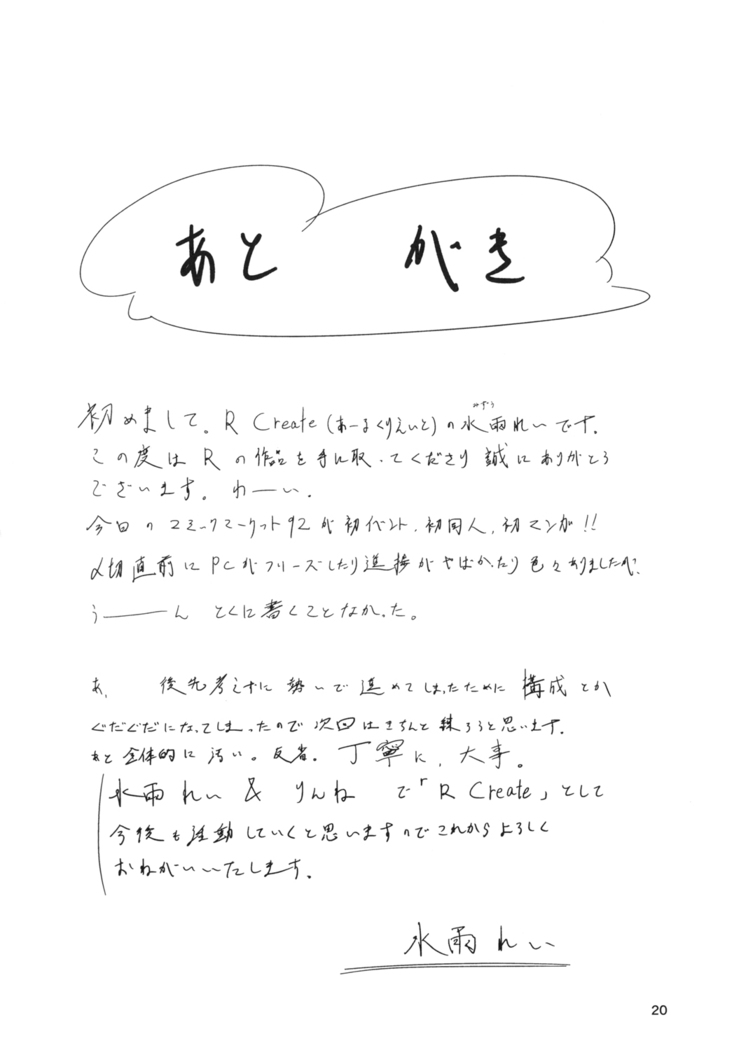 あとがき
初めまして。R Create(あーるくりえいと)の水雨れいです。
この度は Rの作品を手に取ってくださり 誠にありがとう
ございます。わーい。
今回のコミックマーケット92が初イベント、初同人、初マンガ!!
〆切直前にPCがフリーズしたり進捗がやばかったり色々ありましたが、
うーーーん とくに書くことなかった。
あ、 後先考えずに勢いで進めてしまったために構成とか
ぐだぐだになってしまったので次回はきちんと練ろうと思います。
あと全体的に汚い。反省。丁寧に、大事。
水雨れい & りんね で「R Create」として
今後も活動していくと思いますのでこれからよろしく
おねがいいたします。
水雨れい
20